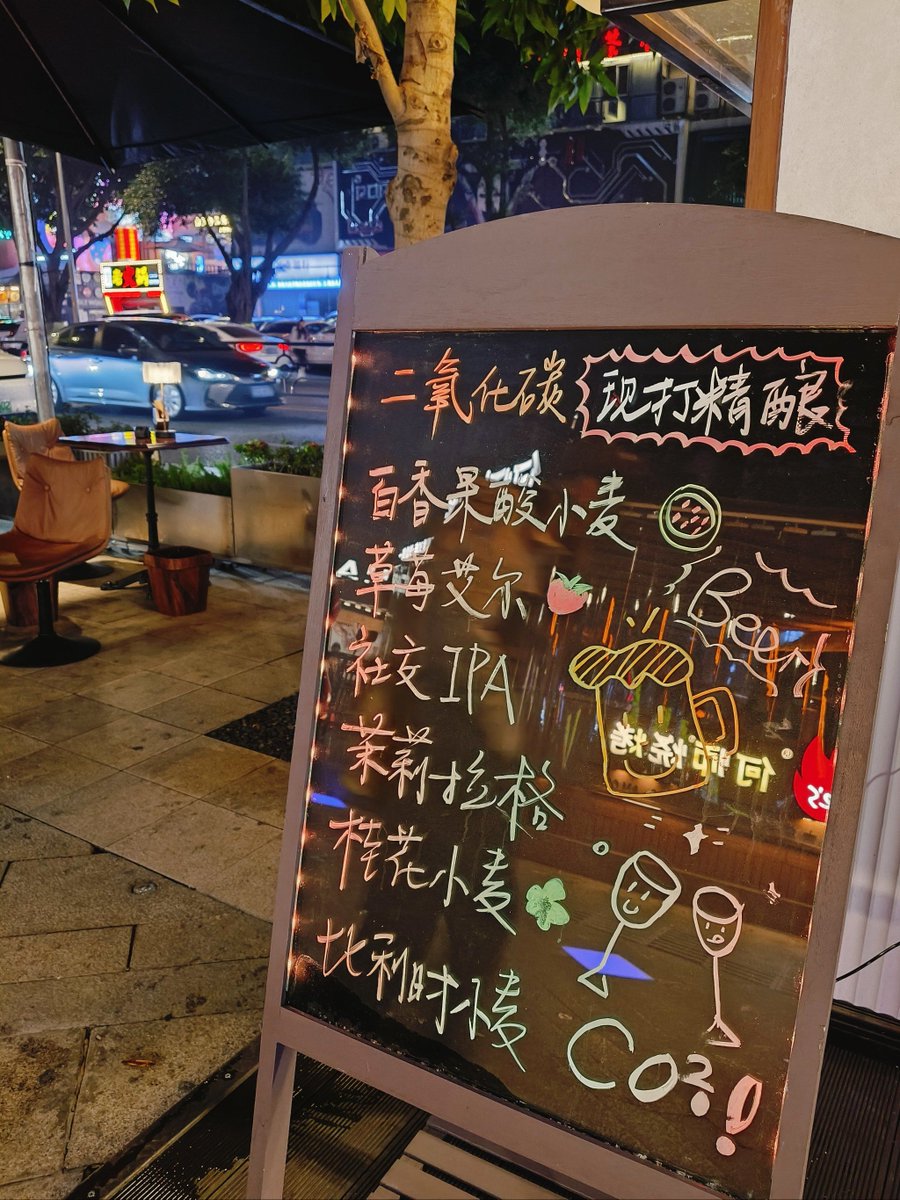 二氧化碳 现打精酿
百香果酸小麦
草莓艾尔
Beer
社交IPA
茉莉拉格
何帽烧烤
桂花小麦
比利时小麦
CO2!